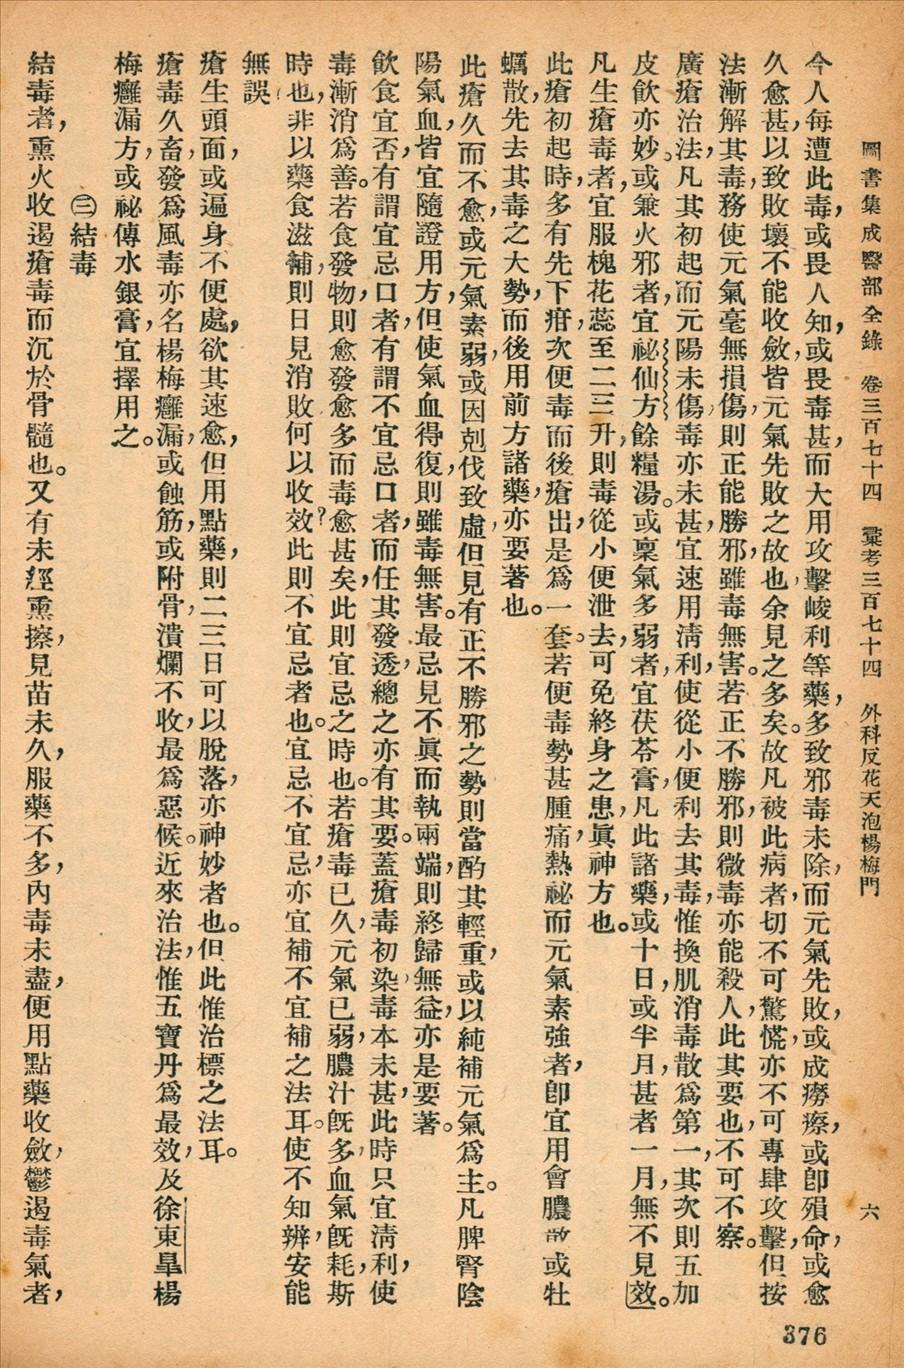 圖書集成醫部全錄　卷三百七十四　彙考三百七十四　外科反花天泡楊梅門　六
今人每遭此毒，或畏人知，或畏毒甚，而大用攻擊峻利等藥，多致邪毒未除，而元氣先敗，或成癆瘵，或卽殞命，或愈
久愈甚，以致敗壞不能收斂，皆元氣先敗之故也，余見之多矣。故凡被此病者，切不可驚慌，亦不可專肆攻擊，但按
法漸解其毒，務使元氣毫無損傷，則正能勝邪，雖毒無害。若正不勝邪，則微毒亦能殺人，此其要也，不可不察。
廣瘡治法，凡其初起，而元陽未傷，毒亦未甚，宜速用淸利，使從小便利去其毒，惟換肌消毒散爲第一，其次則五加
皮飮亦妙。或兼火邪者，宜祕仙方餘糧湯。或稟氣多弱者，宜茯苓膏，凡此諸藥，或十日，或半月，甚者一月，無不見效。
凡生瘡毒者，宜服槐花蕊至二三升，則毒從小便泄去，可免終身之患，眞神方也。
此瘡初起時，多有先下疳，次便毒而後瘡出，是爲一套。若便毒勢甚腫痛，熱祕而元氣素強者，卽宜用會膿散或牡
蠣散，先去其毒之大勢，而後用前方諸藥，亦要著也。
此瘡久而不愈，或元氣素弱，或因剋伐致虛，但見有正不勝邪之勢，則當酌其輕重，或以純補元氣爲主。凡脾腎陰
陽氣血，皆宜隨證用方，但使氣血得復，則雖毒無害。最忌見不眞而執兩端，則終歸無益，亦是要著。
飮食宜否，有謂宜忌口者，有謂不宜忌口者，而任其發透，總之亦有其要。蓋瘡毒初染，毒本未甚，此時只宜淸利，使
毒漸消爲善。若食發物，則愈發愈多而毒愈甚矣，此則宜忌之時也。若瘡毒已久，元氣已弱，膿汁旣多，血氣旣耗，斯
時也，非以藥食滋補，則日見消敗，何以收效？此則不宜忌者也。宜忌不宜忌，亦宜補不宜補之法耳。使不知辨，安能
無誤
瘡生頭面，或遍身不便處，欲其速愈，但用點藥，則二三日可以脫落，亦神妙者也。但此惟治標之法耳。
瘡毒久畜，發爲風毒，亦名楊梅癰漏，或蝕筋，或附骨，潰爛不收，最爲惡候。近來治法，惟五寶丹爲最效，及徐東皐楊
梅癰漏方，或祕傳水銀膏，宜擇用之。
㊂結毒
結毒者，熏火收遏瘡毒而沉於骨髓也。又有未經熏擦，見苗未久，服藥不多，內毒未盡，便用點藥收斂，鬱遏毒氣者，
376